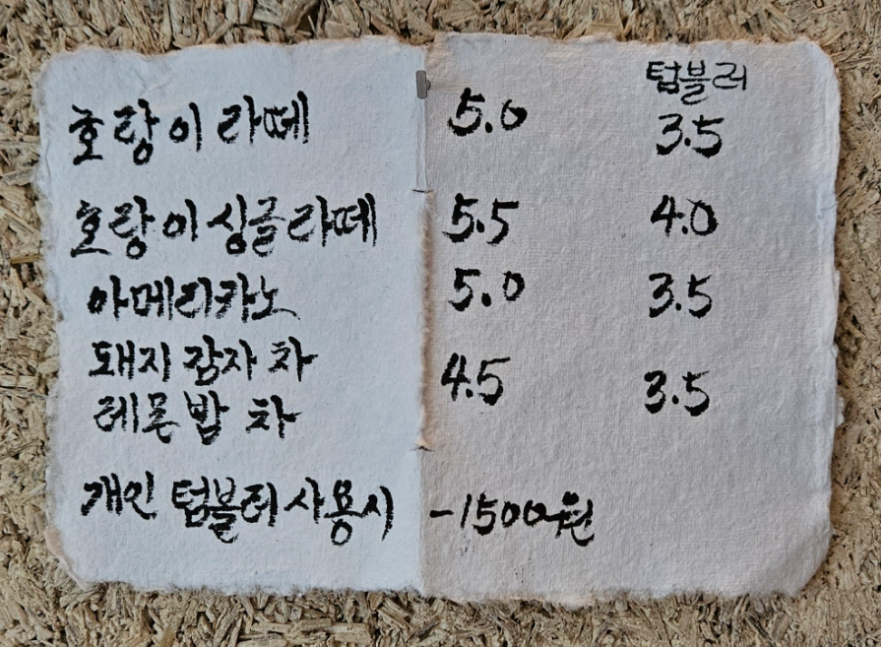 텀블러
호랑이 라떼 5.0 3.5
호랑이 싱글 라떼 5.5 4.0
아메리카노 5.0 3.5
돼지감자 차 4.5 3.5
레몬밤 차
개인 텀블러 사용시 -1500원